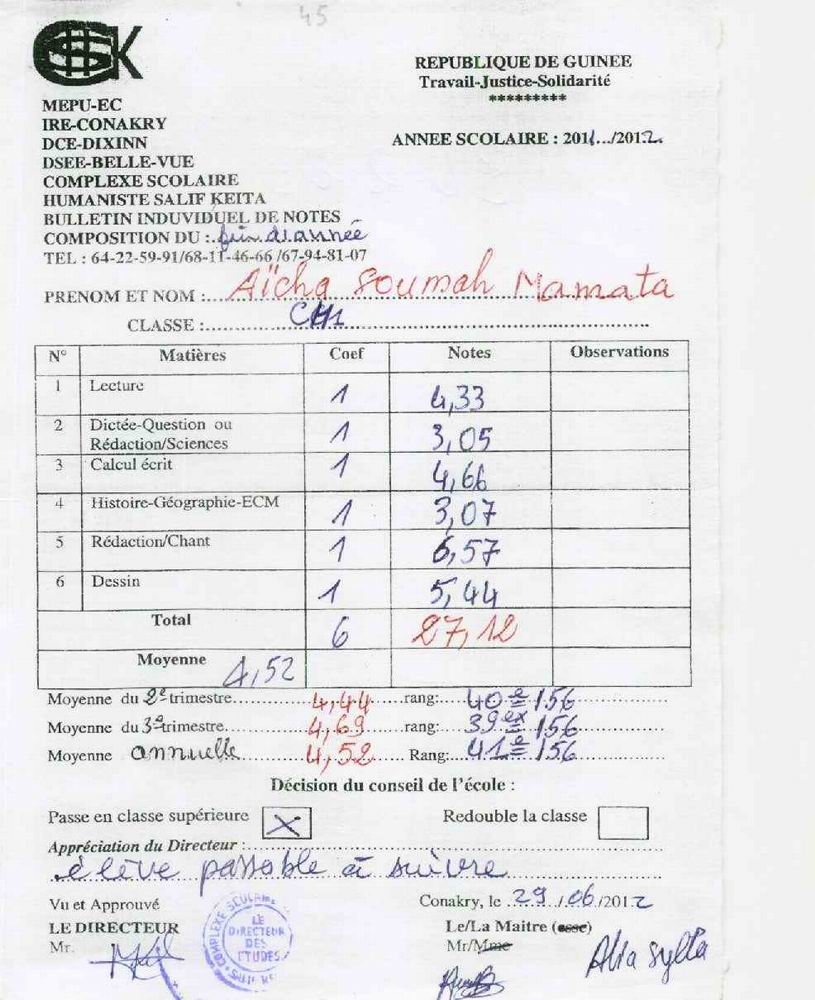 45
SK
REPUBLIQUE DE GUINEE
Travail-Justice-Solidarité
*********
MEPU-EC
IRE-CONAKRY
DCE-DIXINN
DSEE-BELLE-VUE
COMPLEXE SCOLAIRE
HUMANISTE SALIF KEITA
BULLETIN INDUVIDUEL DE NOTES
ANNEE SCOLAIRE : 2011.../2012
COMPOSITION DU : fin d'année
TEL : 64-22-59-91/68-11-46-66 /67-94-81-07
PRENOM ET NOM : Aïcha Soumah Mamata
CLASSE :
N° Matières Coef Notes Observations
1 Lecture 1 4,33
2 Dictée-Question ou Rédaction/Sciences 1 3,05
3 Calcul écrit 1 4,66
4 Histoire-Géographie-ECM 1 3,07
5 Rédaction/Chant 1 6,57
6 Dessin 1 5,44
Total 6 27,12
Moyenne 4,52
Moyenne du 2e trimestre 4,44 rang: 40e/156
Moyenne du 3e trimestre 4,69 rang: 39ex/156
Moyenne annuelle 4,52 Rang: 41e/156
Décision du conseil de l'école :
Passe en classe supérieure X Redouble la classe
Appréciation du Directeur :
élève passable à suivre
Vu et Approuvé
Conakry, le 29/06/2012
LE DIRECTEUR
Le/La Maitre (esse)
Mr.
Mr/Mme
LE DIRECTEUR DES ETUDES
Alia Sylla